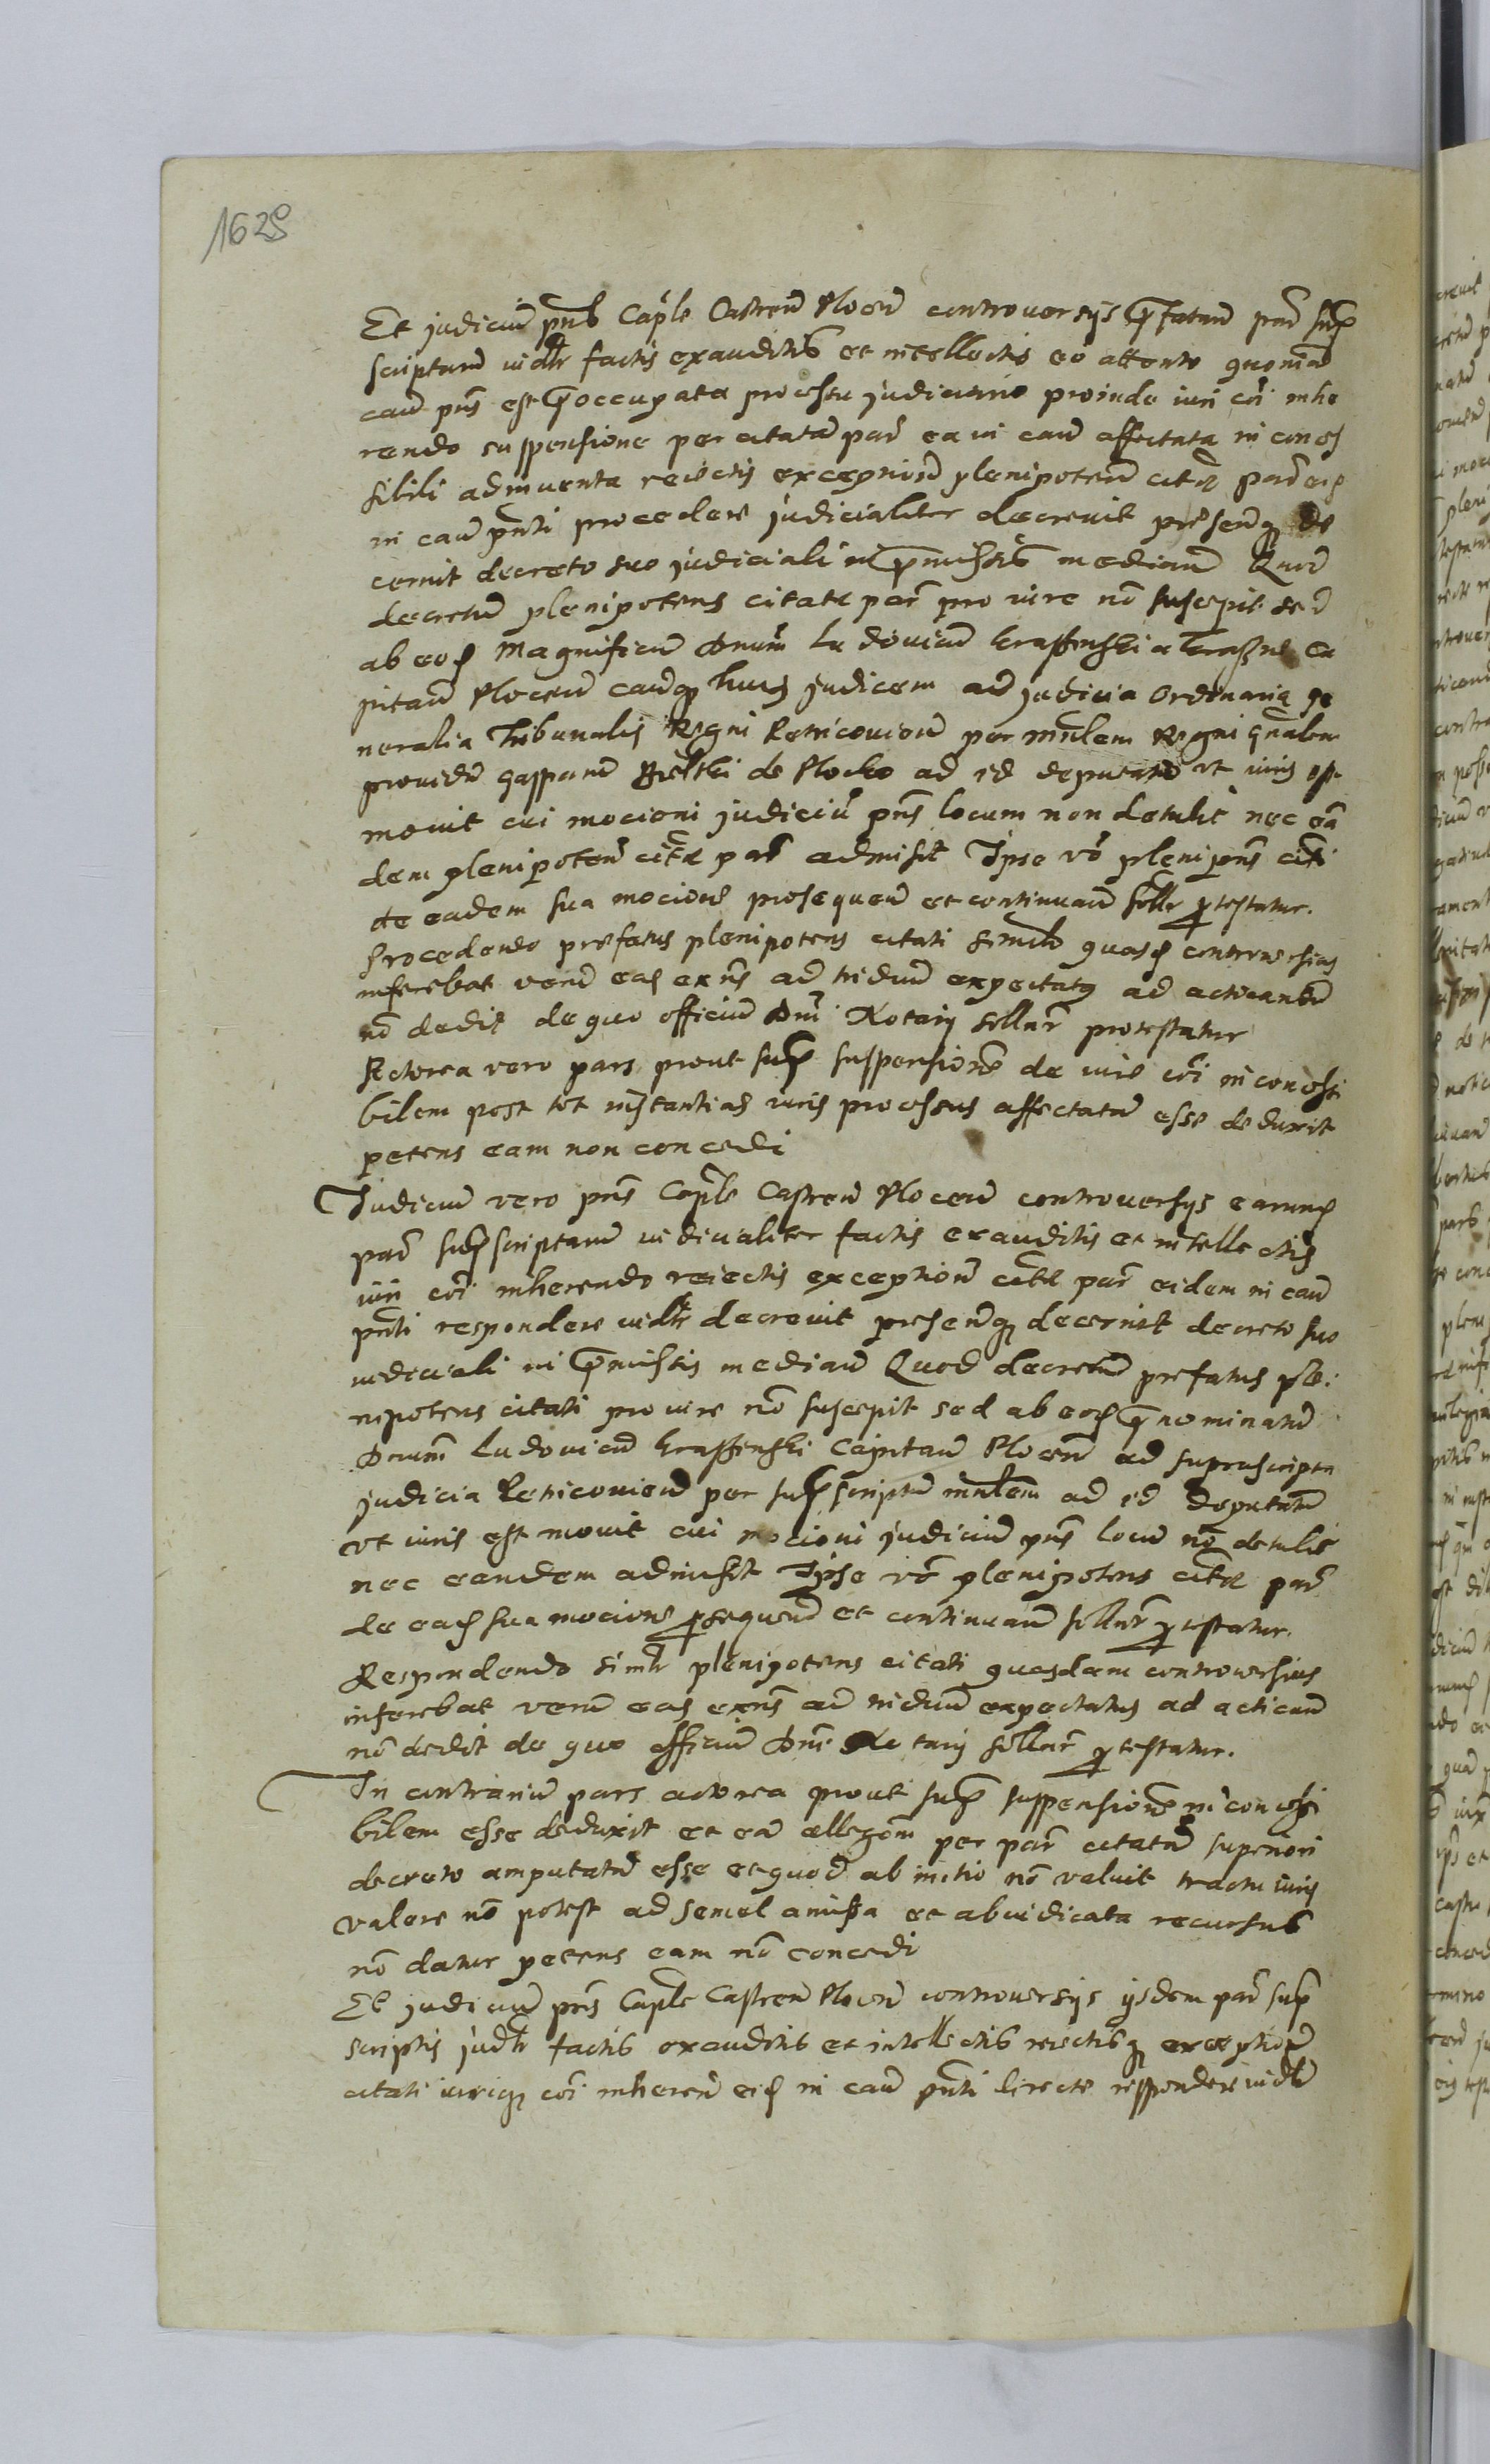 1629
Et judiciū pn̄s Cap̄le Castren̄ Plocen̄ controversijs p̄fatarū par̄ sup̄
scriptarū iudlr̄ factis exauditis et intellectis eo attento quoniā
cau̅ pn̄s est p̄occupata processu judiciario proinde iuri cōi inhe
rendo suspensione per citatā par̄ ea in cau̅ affectata in conces
sibili adinventa reiectis exceptionib̄ plenipoten̄ citt̄ par̄ eid̄
in cau̅ pn̄ti procedere judicialiter decrevit presen̄q̄ de
cernit decreto suo judiciali in p̄missis median̄ Quod
decretū plenipotens citate par̄ pro iure nō suscepit sed
ab eod̄ Magnificū Dnūm Ludovicū Krassinski a Krasne Ca
pitan̄ Plocen̄ caus̄q̄ huius judicem ad judicia Ordinaria ge
neralia Tribunalis Regni Petricovien̄ per mn̄lem Regni gn̄alem
providū Gasparū Bielski de Plocko ad id deputatū ut iuris est
movit cui mocioni judiciū pn̄s locum non detulit nec eā
dem plenipoten̄ citt̄ par̄ admisit Ipse vō plenipn̄s citti
de eadem sua mocione prosequen̄ et continuan̄ sollr̄ p̄testatur.
Procedendo prefatus plenipotens citati similr̄ quasd̄ controversias
inferebat verū eas exn̄s ad triduū expectatus ad acticandū
nō dedit de quo officiū Dnī Notarij sollnr̄ protestatur
Actorea vero pars prout sup̄ suspensionē de iure cōi in concessi
bilem post tot instantias iuris processus affectatā esse deduxit
petens eam non concedi
Judiciū vero pn̄s Cap̄le Castren̄ Plocen̄ controversijs earund̄
par̄ sup̄scriptarū iudicialiter factis exauditis et intellectis
iuri cōi inherendo reiectis exceptionib̄ citt̄ par̄ eidem in cau̅
pn̄ti respondere iudlr̄ decrevit presen̄q̄ decernit decreto suo
iudiciali in p̄missis median̄ Quod decretū prefatus ple
nipotens citati pro iure nō suscepit sed ab eod̄ p̄nominatū
Dnūm Ludovicū Krassinski Capitan̄ Plocen̄ ad suprascripta
judicia Petricovien̄ per sup̄scriptū mn̄lem ad id deputatū
ut iuris est movit cui mocioni judiciū pn̄s locū nō detulit
nec eandem admisit Ipse vō plenipotens citt̄ par̄
de ead̄ sua mocione p̄sequen̄ et continuan̄ sollnr̄ p̄testatur.
Respondendo similr̄ plenipotens citati quasdam controversias
inferebat verū eas exn̄s ad triduū expectatus ad acticand̄
nō dedit de quo officiū Dnī Notarij sollnr̄ p̄testatur.
In contrariū pars actorea prout sup̄ suspensionē in concessi
bilem esse deduxit et eā allegōm per par̄ citatā superiori
decreto amputatā esse et quod ab initio nō valuit tractu iuris
valere nō potest ad semel amissa et abiudicata recursus
nō datur petens eam nō concedi
Et judiciū pn̄s Cap̄le Castren̄ Plocen̄ controversijs ijsdem par̄ sup̄
scriptis judlr̄ factis exauditis et intellectis reiectisq̄ exceptionib̄
citati iuriq̄ cōi inheren̄ eid̄ in cau̅ pn̄ti directe respondere iudlr̄